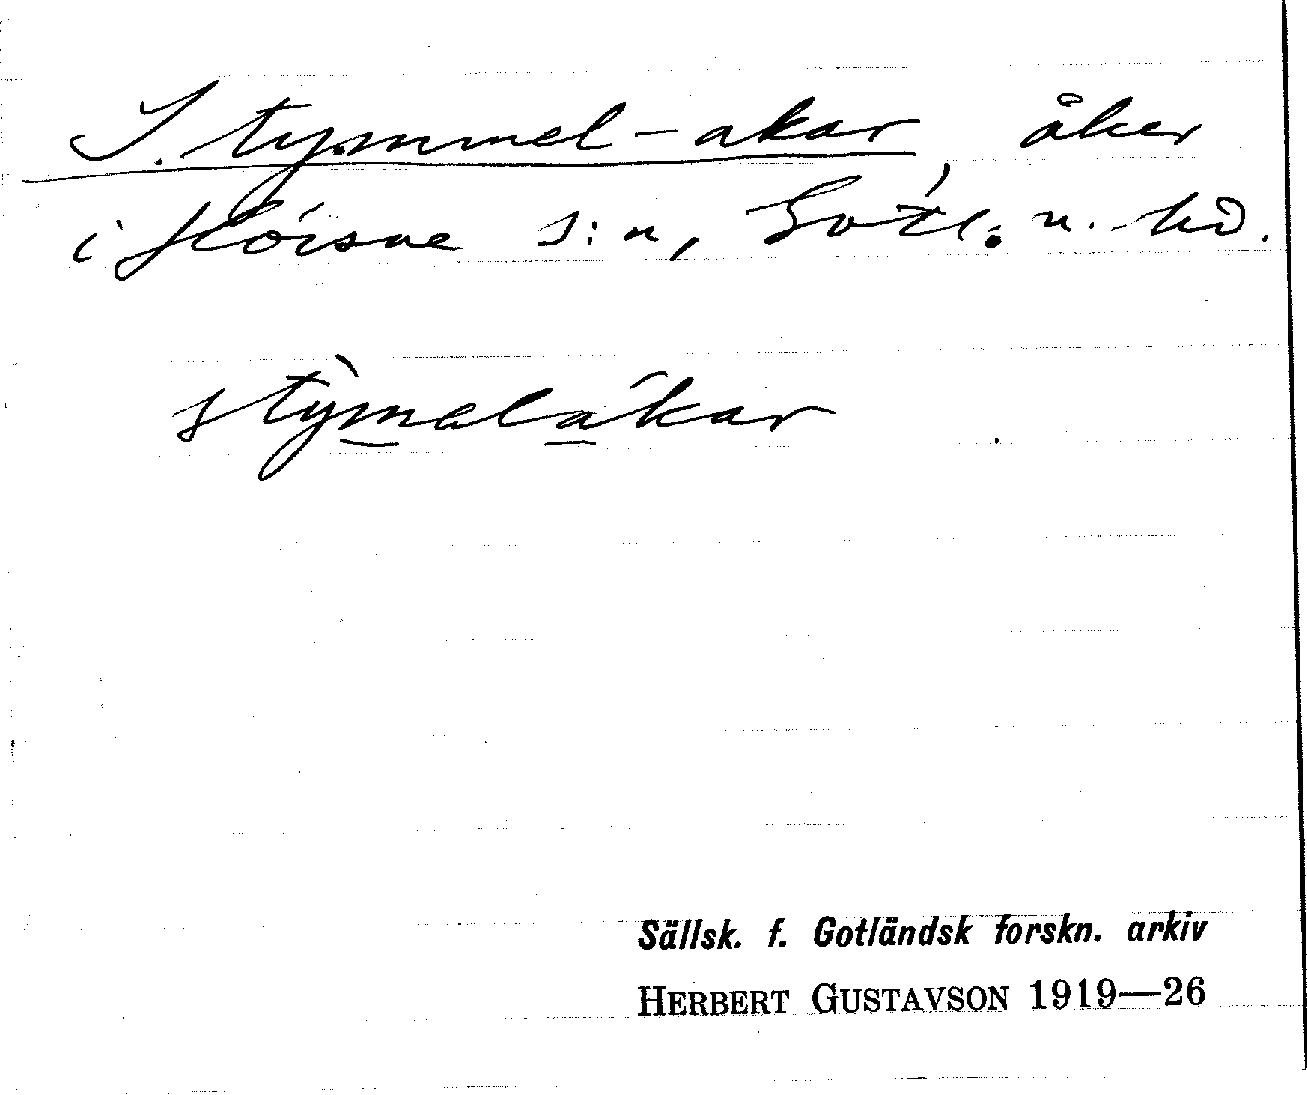 Stymmel-akar, åker
i Hörsne s:n, Gotl:s n. hd.
stỳmelákar
Sällsk. f. Gotländsk forskn. arkiv
HERBERT GUSTAVSON 1919—26